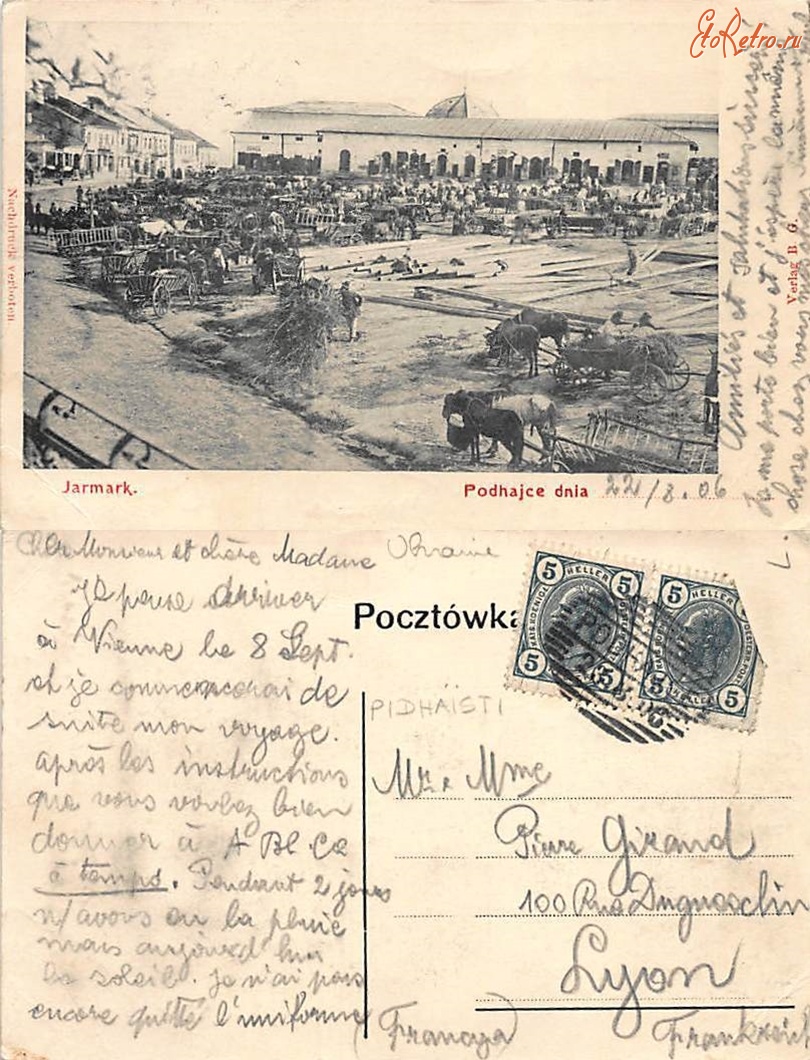 EtoRetro.ru
Nachdruck verboten
Verlag B. G.
Jarmark.
Podhajce dnia 22/8.06
Amitiés et salutations
Je me porte bien et j'espère la même
chose chez vous
Cher Monsieur et chère Madame
Ukraine
Je pense arriver
à Vienne le 8 Sept.
et je commencerai de
suite mon voyage.
après les instructions
que vous voulez bien
donner à
à temps. Pendant 2 jours
n/avons eu la pluie
mais aujourd'hui
le soleil. Je n'ai pas
encore quitté l'uniforme
Pocztówka
5 HELLER 5
5 5
5 HELLER 5
5 5
PIDHAÏSTI
Mr & Mme
Pierre Girand
100 Rue Duguesclin
Lyon
(Francya)
Frankreich